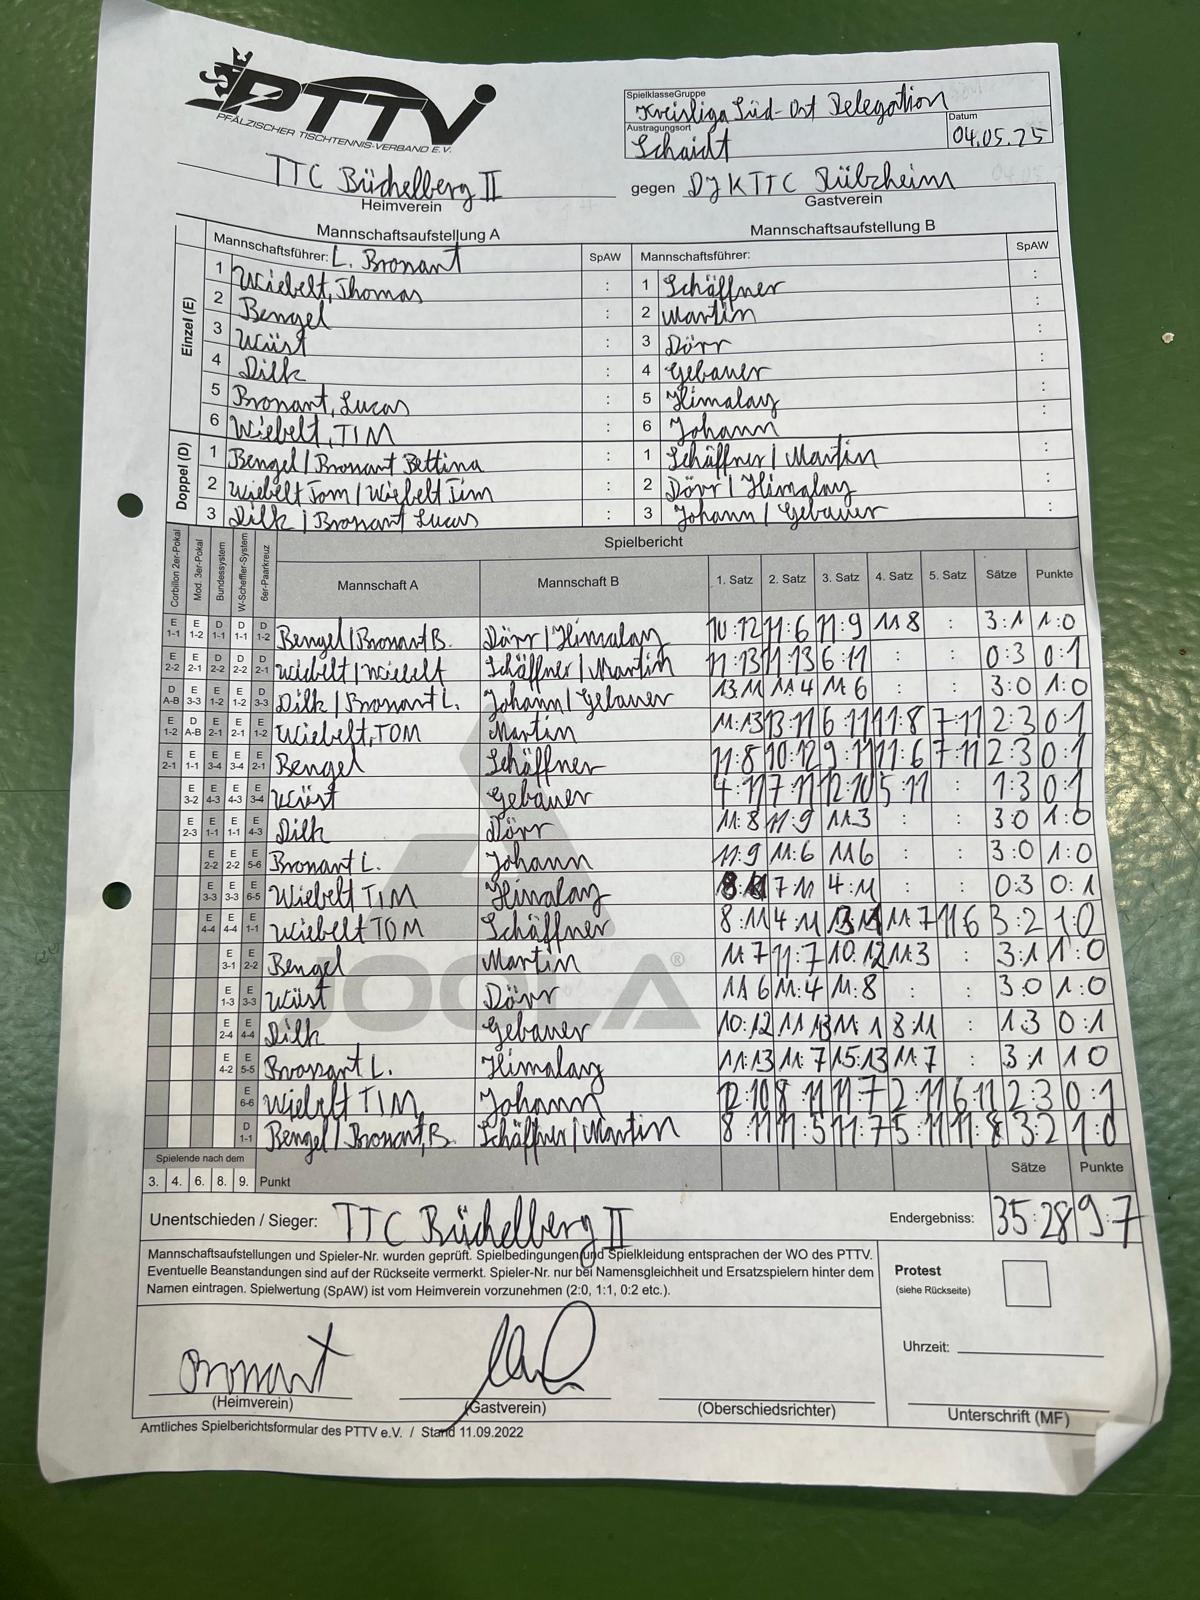 PTTV
PFÄLZISCHER TISCHTENNIS-VERBAND E.V.
SpielklasseGruppe
Kreisliga Süd-Ost Relegation
Austragungsort
Schaidt
Datum
04.05.25
TTC Büchelberg II
Heimverein
gegen
DJK TTC Rülzheim
Gastverein
Mannschaftsaufstellung A
Mannschaftsaufstellung B
Mannschaftsführer: L. Bronant SpAW
Mannschaftsführer: SpAW
Einzel (E)
1 Wiebelt, Thomas : 1 Schäffner :
2 Bengel : 2 Martin :
3 Wüst : 3 Dörr :
4 Dilk : 4 Gebauer :
5 Bronant, Lucas : 5 Himalay :
6 Wiebelt, TIM : 6 Johann :
Doppel (D)
1 Bengel / Bronant Bettina : 1 Schäffner / Martin :
2 Wiebelt Tom / Wiebelt Tim : 2 Dörr / Himalay :
3 Dilk / Bronant Lucas : 3 Johann / Gebauer :
Spielbericht
Corbillon 2er-Pokal Mod. 3er-Pokal Bundessystem W-Scheffler-System 6er-Paarkreuz Mannschaft A Mannschaft B 1. Satz 2. Satz 3. Satz 4. Satz 5. Satz Sätze Punkte
E 1-1 E 1-2 D 1-1 D 1-1 D 1-2 Bengel / Bronant B. Dörr / Himalay 10:12 11:6 11:9 11 8 : 3:1 1:0
E 2-2 E 2-1 D 2-2 D 2-2 D 2-1 Wiebelt / Wiebelt Schäffner / Martin 11:13 11:13 6:11 : : 0:3 0:1
D A-B E 3-3 E 1-2 E 1-2 D 3-3 Dilk / Bronant L. Johann / Gebauer 13 11 11 4 11 6 : : 3:0 1:0
E 1-2 D A-B E 2-1 E 2-1 E 1-2 Wiebelt, TOM Martin 11:13 13:11 6:11 11:8 7:11 2:3 0:1
E 2-1 E 1-1 E 3-4 E 3-4 E 2-1 Bengel Schäffner 11:8 10:12 9:11 11:6 7:11 2:3 0:1
E 3-2 E 4-3 E 4-3 E 3-4 Wüst Gebauer 4:11 7:11 12:10 5:11 : 1:3 0:1
E 2-3 E 1-1 E 1-1 E 4-3 Dilk Dörr 11:8 11:9 11:3 : : 3:0 1:0
E 2-2 E 2-2 E 5-6 Bronant L. Johann 11:9 11:6 11 6 : : 3:0 1:0
E 3-3 E 3-3 E 6-5 Wiebelt TIM Himalay 7 11 4:11 : : 0:3 0:1
E 4-4 E 4-4 E 1-1 Wiebelt TOM Schäffner 8:11 4:11 11:7 11 6 3:2 1:0
E 3-1 E 2-2 Bengel Martin 11 7 11:7 10:12 11:3 : 3:1 1:0
E 1-3 E 3-3 Wüst Dörr 11 6 11:4 11:8 : : 3:0 1:0
E 2-4 E 4-4 Dilk Gebauer 10:12 11 13 11:1 8 11 : 1:3 0:1
E 4-2 E 5-5 Bronant L. Himalay 11:13 11:7 15:13 11:7 : 3:1 1 0
E 6-6 Wiebelt TIM Johann 12:10 8:11 11:7 2:11 6:11 2:3 0:1
D 1-1 Bengel / Bronant, B. Schäffner / Martin 8:11 11:5 11:7 5:11 11:8 3:2 1:0
Spielende nach dem Sätze Punkte
3. 4. 6. 8. 9. Punkt
Unentschieden / Sieger: TTC Büchelberg II Endergebniss: 35:28 9:7
Mannschaftsaufstellungen und Spieler-Nr. wurden geprüft. Spielbedingungen und Spielkleidung entsprachen der WO des PTTV.
Eventuelle Beanstandungen sind auf der Rückseite vermerkt. Spieler-Nr. nur bei Namensgleichheit und Ersatzspielern hinter dem
Namen eintragen. Spielwertung (SpAW) ist vom Heimverein vorzunehmen (2:0, 1:1, 0:2 etc.).
Protest
(siehe Rückseite)
Uhrzeit:
Bronant
(Heimverein)
(Gastverein)
(Oberschiedsrichter)
Unterschrift (MF)
Amtliches Spielberichtsformular des PTTV e.V. / Stand 11.09.2022
JOOLA®